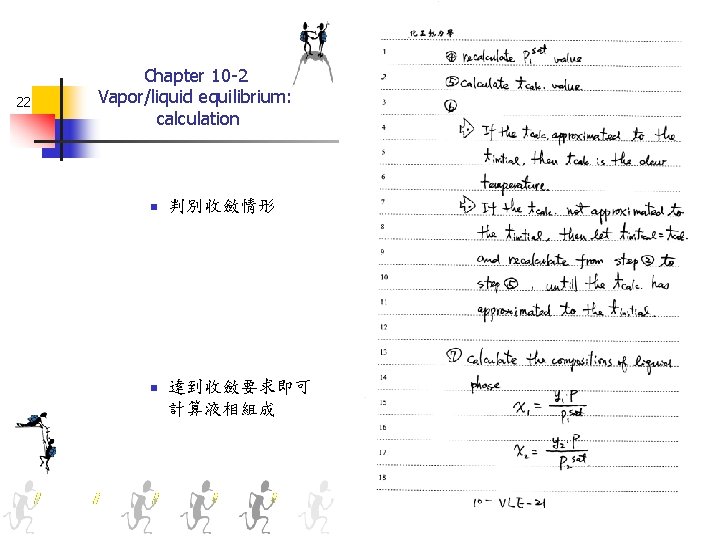 22
Chapter 10-2
Vapor/liquid equilibrium:
calculation
判別收斂情形
達到收斂要求即可
計算液相組成
化工熱力學
1 ④ recalculate P₁ˢᵃᵗ value
2 ⑤ calculate tcalc. value
3 ⑥
4 If the tcalc. approximated to the
5 tinitial, then tcalc is the dew
6 temperature.
7 If the tcalc. not approximated to
8 the tinitial, then let tinitial = tcalc.
9 and recalculate from step ③ to
10 step ⑤, untill the tcalc. has
11 approximated to the tinitial.
12
13 ⑦ calculate the compositions of liquid
14 phase
15 x₁ = y₁·P / P₁ˢᵃᵗ
16
17 x₂ = y₂·P / P₂ˢᵃᵗ
18
10-VLE-21